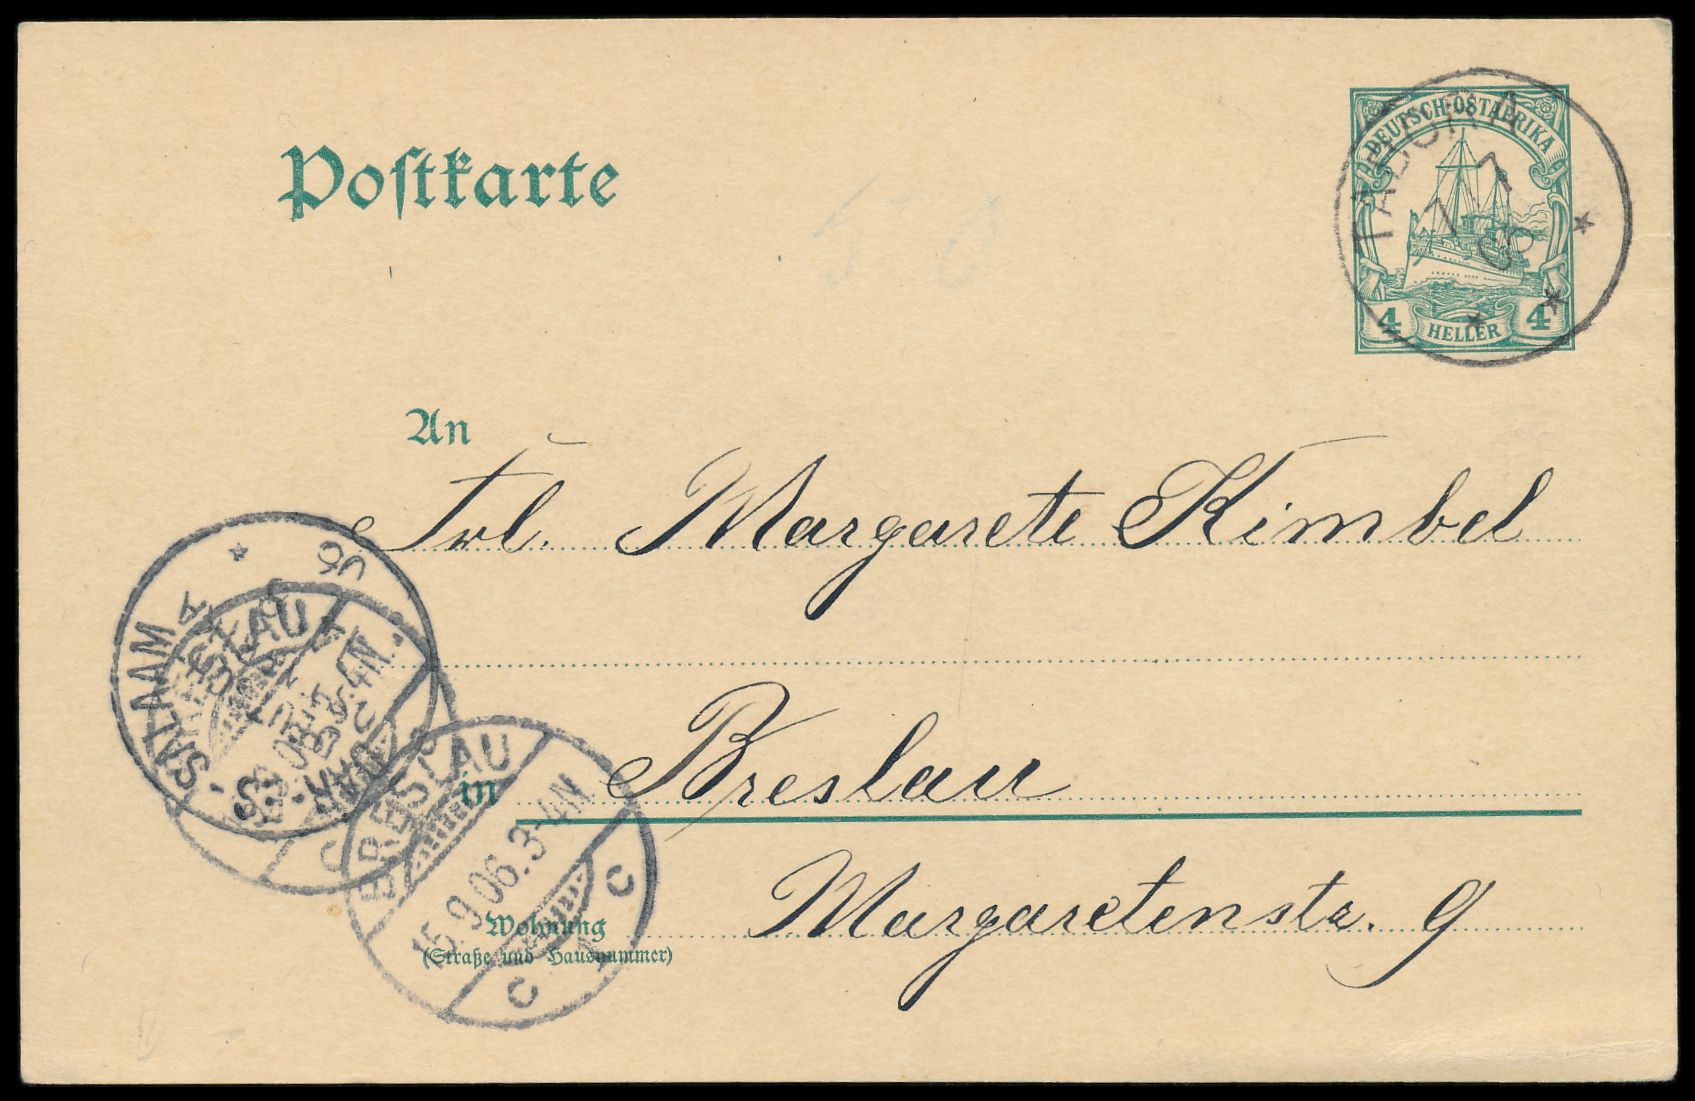 Postkarte
DEUTSCH-OSTAFRIKA
4 HELLER 4
TABORA
7
7
06
An
Frl. Margarete Kimbel
in Breslau
Wohnung
(Straße und Hausnummer)
Margaretenstr. 9
DAR-ES-SALAAM
A
06
BRESLAU
C
BRESLAU
15.9.06.3-4N
C 1 C